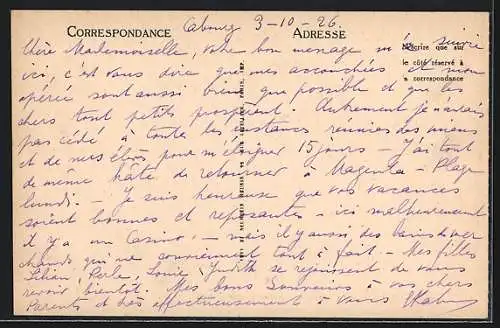 CORRESPONDANCE
Cabourg 3-10-26.
ADRESSE
N'écrire que sur
le côté réservé à
la correspondance
Chère Mademoiselle, votre bon message m'a suivie
ici, c'est vous dire que mes accouchées et mon
opérée sont aussi bien que possible et que les
chers tout petits prospèrent. Autrement je n'aurais
pas cédé à toutes les instances réunies des miens
et de mes élèves pour m'éloigner 15 jours - J'ai tout
de même hâte de retourner à Magenta-Plage
lundi. - Je suis heureuse que vos vacances
soient bonnes et reposantes - ici malheureusement
il y a un Casino - mais il y aussi des bains de mer
chauds qui me conviennent tout à fait. - Mes filles
Lilian, Perle, Louise, Judith se réjouissent de vous
revoir bientôt. Mes bons Souvenirs à vos chers
Parents et très affectueusement à vous